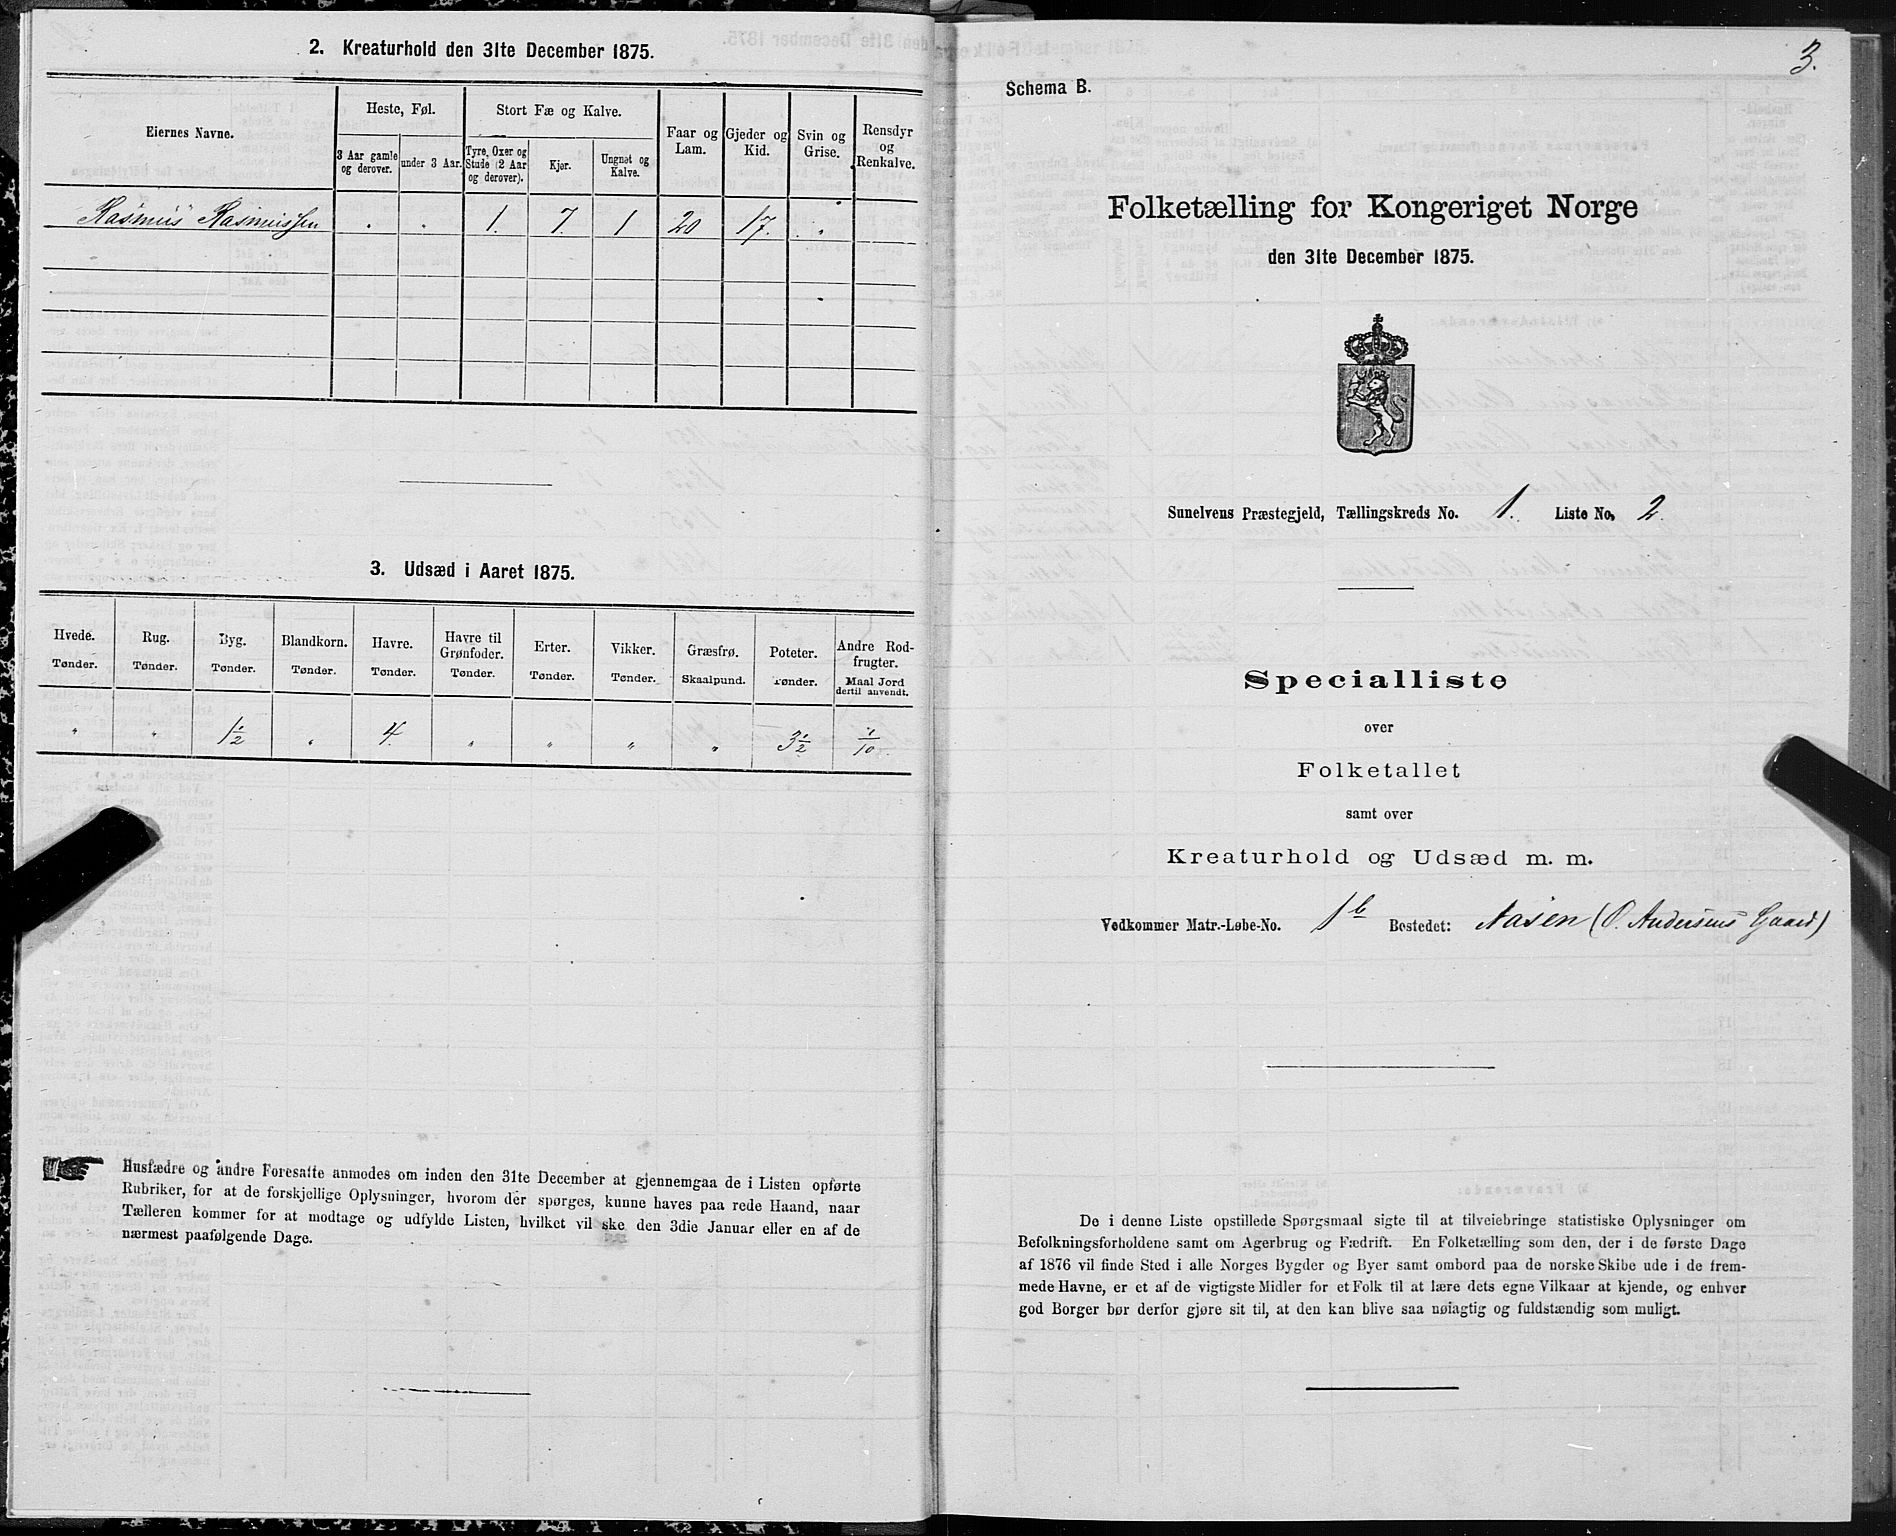 2. Kreaturhold den 31te December 1875.
Eiernes Navne.
Heste, Føl.
Stort Fæ og Kalve.
Faar og Lam.
Gjeder og Kid.
Svin og Grise.
Rensdyr og Renkalve.
3 Aar gamle og derover.
under 3 Aar.
Tyre, Oxer og Stude (2 Aar og derover).
Kjør.
Ungnøt og Kalve.
Rasmus Rasmussen " " 1. 7. 1 20 17. "
3. Udsæd i Aaret 1875.
Hvede. Rug. Byg. Blandkorn. Havre. Havre til Grønfoder. Erter. Vikker. Græsfrø. Poteter. Andre Rodfrugter.
Tønder. Tønder. Tønder. Tønder. Tønder. Tønder. Tønder. Tønder. Skaalpund. Tønder. Maal Jord dertil anvendt.
" " 1½ " 4. " " " " 3½ 1/10
Husfædre og andre Foresatte anmodes om inden den 31te December at gjennemgaa de i Listen opførte
Rubriker, for at de forskjellige Oplysninger, hvorom der spørges, kunne haves paa rede Haand, naar
Tælleren kommer for at modtage og udfylde Listen, hvilket vil ske den 3die Januar eller en af de
nærmest paafølgende Dage.
3.
Schema B.
Folketælling for Kongeriget Norge
den 31te December 1875.
Sunelvens Præstegjeld, Tællingskreds No. 1. Liste No. 2.
Specialliste
over
Folketallet
samt over
Kreaturhold og Udsæd m. m.
Vedkommer Matr.-Løbe-No. 1b Bostedet: Aasen (O. Andersens Gaard)
De i denne Liste opstillede Spørgsmaal sigte til at tilveiebringe statistiske Oplysninger om
Befolkningsforholdene samt om Agerbrug og Fædrift. En Folketælling som den, der i de første Dage
af 1876 vil finde Sted i alle Norges Bygder og Byer samt ombord paa de norske Skibe ude i de frem-
mede Havne, er et af de vigtigste Midler for et Folk til at lære dets egne Vilkaar at kjende, og enhver
god Borger bør derfor gjøre sit til, at den kan blive saa nøiagtig og fuldstændig som muligt.